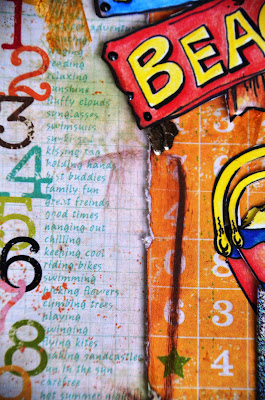 BEA
1
2
3
4
5
6
7
8
adventure
reading
relaxing
sunshine
fluffy clouds
sunglasses
swimsuits
kissing
holding hands
best buddies
family fun
great freinds
good times
hanging out
chilling
keeping cool
riding bikes
swimming
picking flowers
climbing trees
playing
swinging
flying kites
making sandcastles
fun in the sun
carefree
hot summer night